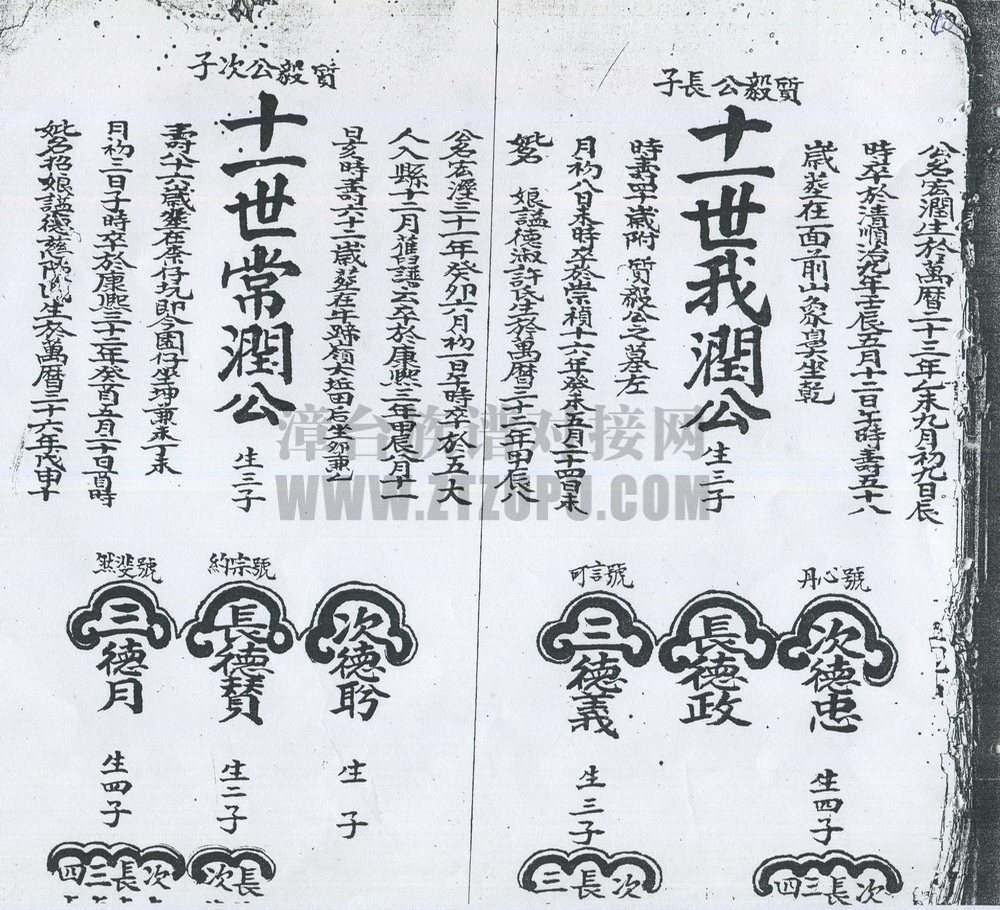 質毅公長子
十一世我潤公
生三子
公名宏潤生於萬曆二十三年乙未九月初九日辰
時卒於清順治九年壬辰五月十二日午時壽五十八
歲葬在面前山象鼻坐乾
時壽四十歲附質毅公之墓左
月初八日未時卒於崇禎十六年癸未五月十四日未
妣名 娘謚德淑許氏生於萬曆三十二年甲辰八
號心丹
次德忠
生四子
長德政
號言可
三德義
生三子
次長三四
次長三
質毅公次子
十一世常潤公
生三子
公名宏瀅三十一年癸卯六月初一日午時卒於五大
人入縣十二月舊譜云卒於康熙三年甲辰八月十一
日亥時壽六十二歲葬在牛蹄嶺大坵田后坐卯兼乙
壽八十六歲葬在奈仔坑即今園仔坐坤兼未丁未
月初三日子時卒於康熙三十二年癸酉五月二十日酉時
妣名招娘謚德慈 生於萬曆三十六年戊申十
次德聆
生 子
號宗約
長德贊
生二子
號斐然
三德月
生四子
長次
次長三四
漳台族谱对接网
WWW.ZTZUPU.COM